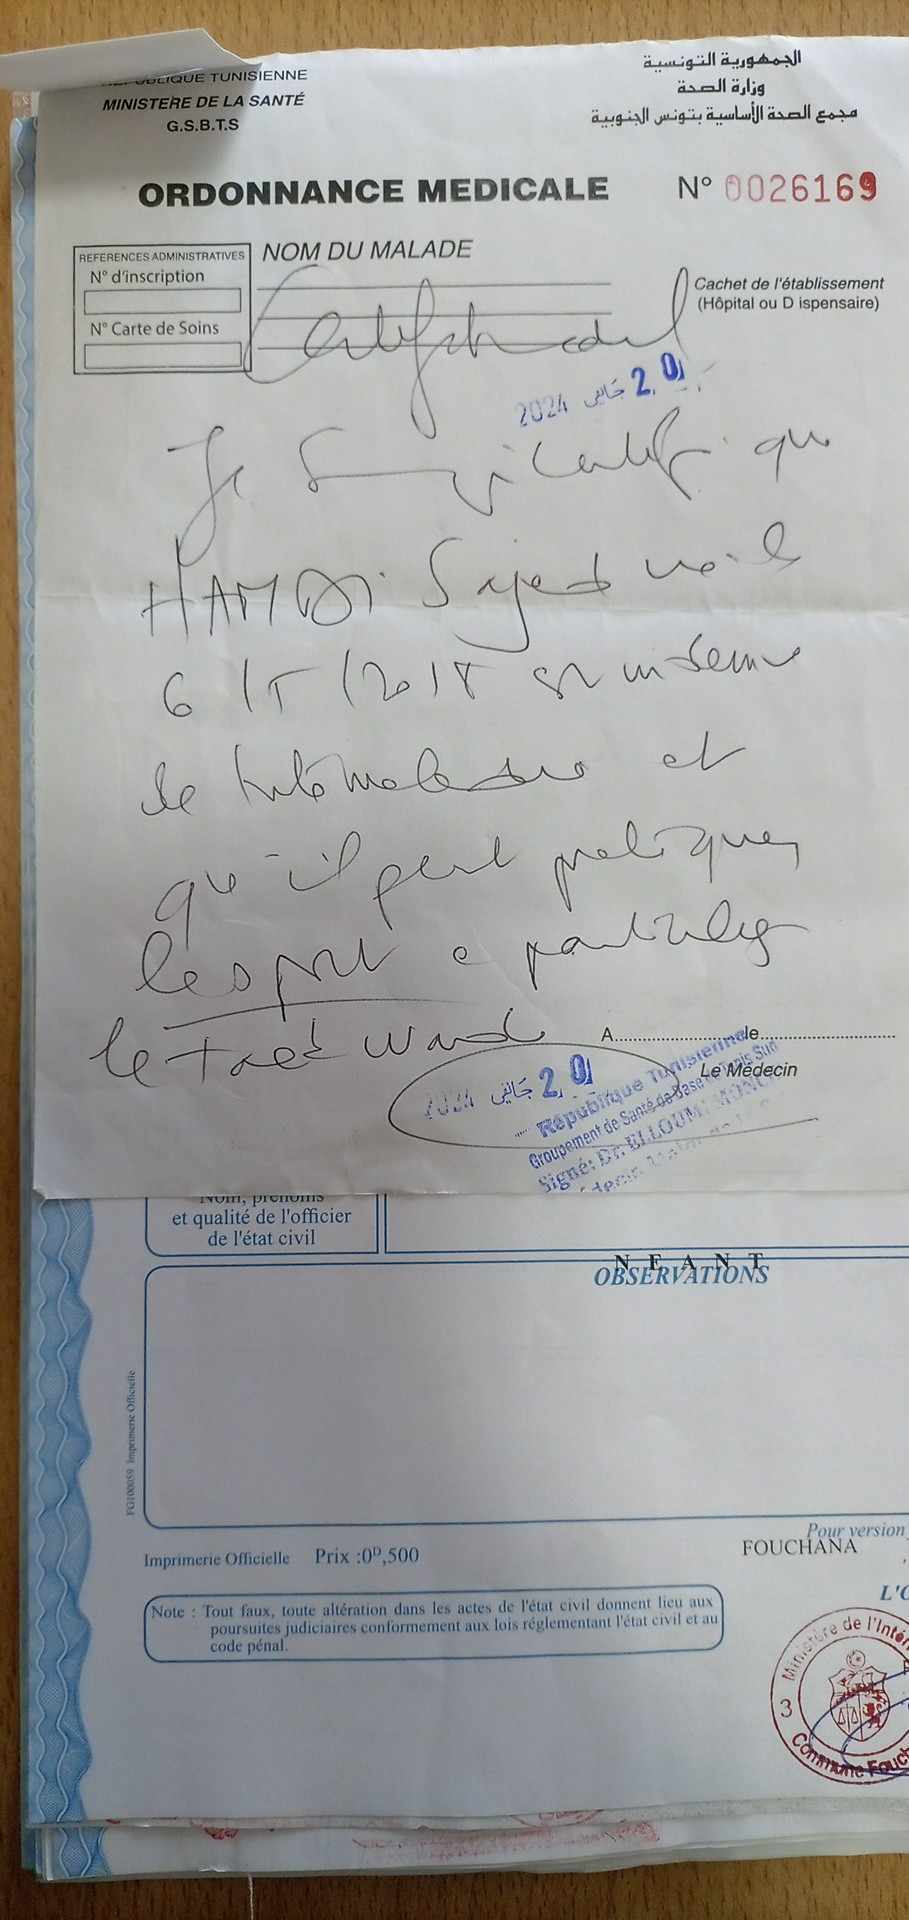 REPUBLIQUE TUNISIENNE
MINISTERE DE LA SANTÉ
G.S.B.T.S
الجمهورية التونسية
وزارة الصحة
مجمع الصحة الأساسية بتونس الجنوبية
ORDONNANCE MEDICALE
N° 0026169
REFERENCES ADMINISTRATIVES
N° d'inscription
N° Carte de Soins
NOM DU MALADE
Cachet de l'établissement
(Hôpital ou D ispensaire)
Certif médical
2024 جانفي 20
Je certifie que
HAMDI Sajed né le
6/5/2018 est indemne
de toute maladie et
qu'il peut pratiquer
le sport
le
A..............le..............
Le Médecin
2024 جانفي 20
République Tunisienne
Groupement de Santé de Base de Tunis Sud
Signé: Dr. ELLOUMI
Nom, prénoms
et qualité de l'officier
de l'état civil
NEANT
OBSERVATIONS
FG100059 Imprimerie Officielle
Imprimerie Officielle Prix :0ᴰ,500
Pour version
FOUCHANA
L'O
Note : Tout faux, toute altération dans les actes de l'état civil donnent lieu aux
poursuites judiciaires conformement aux lois réglementant l'état civil et au
code pénal.
Ministère de l'Intér
3
Commune Fouch